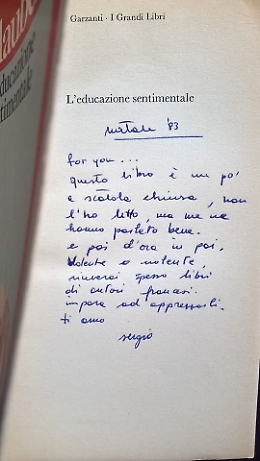 Flaube
ducazione
ntimentale
Garzanti · I Grandi Libri
L'educazione sentimentale
natale '83
for you...
questo libro è un po'
a scatola chiusa, non
l'ho letto, ma me ne
hanno parlato bene.
e poi d'ora in poi,
volente o nolente,
riceverai spesso libri
di autori francesi.
impara ad apprezzarli.
ti amo
sergio